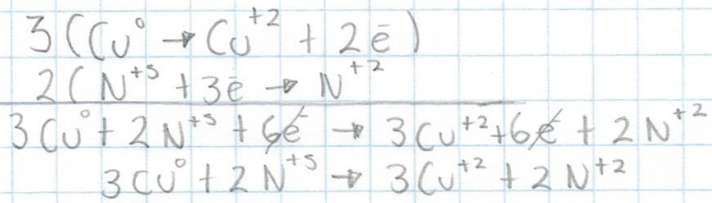 3(Cu⁰ → Cu⁺² + 2ē)
2(N⁺⁵ + 3ē → N⁺²
3Cu⁰ + 2N⁺⁵ + 6ē → 3Cu⁺² + 6ē + 2N⁺²
3Cu⁰ + 2N⁺⁵ → 3Cu⁺² + 2N⁺²